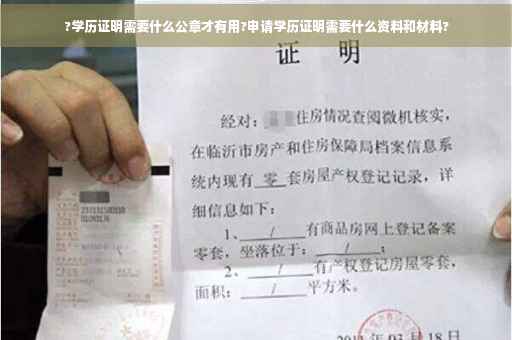 ?学历证明需要什么公章才有用?申请学历证明需要什么资料和材料?
证 明
经对: 住房情况查阅微机核实,
在临沂市房产和住房保障局档案信息系
统内现有 零 套房屋产权登记记录,详
细信息如下:
1、 / 有商品房网上登记备案
零套,坐落位于: / ;
2、 / 有产权登记房屋零套,
面积: / 平方米。
03月18日